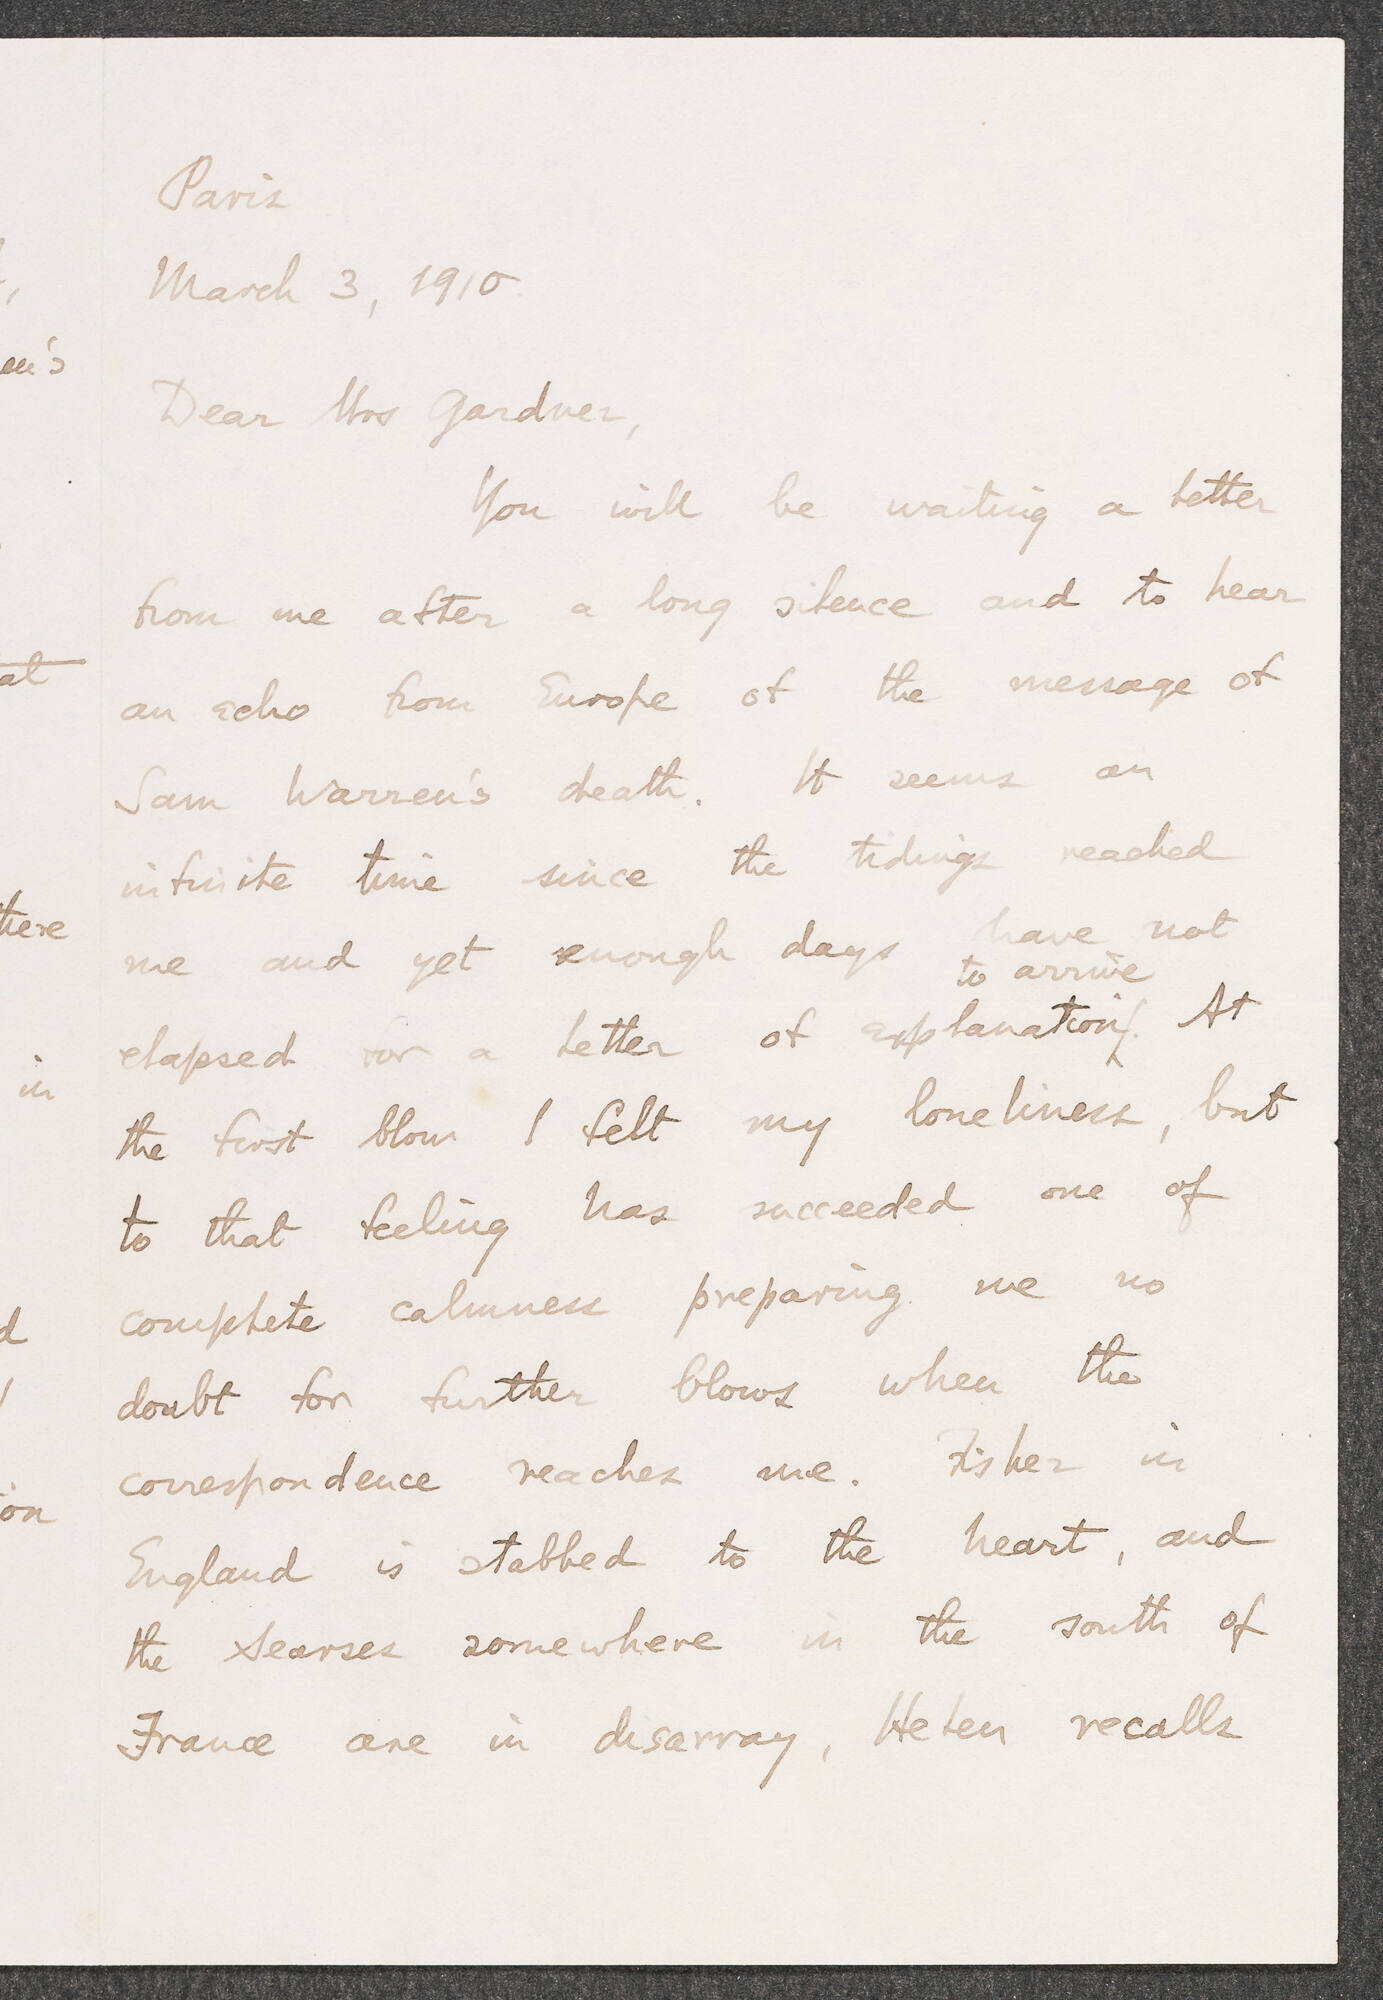 Paris
March 3, 1910
Dear Mrs Gardner,
You will be waiting a letter
from me after a long silence and to hear
an echo from Europe of the message of
Sam Warren's death. It seems an
infinite time since the tidings reached
me and yet enough days have not
to arrive
elapsed for a letter of explanation. At
the first blow I felt my loneliness, but
to that feeling has succeeded one of
complete calmness preparing me no
doubt for further blows when the
correspondence reaches me. Fisher in
England is stabbed to the heart, and
the Searses somewhere in the south of
France are in disarray, Helen recalls
there
in